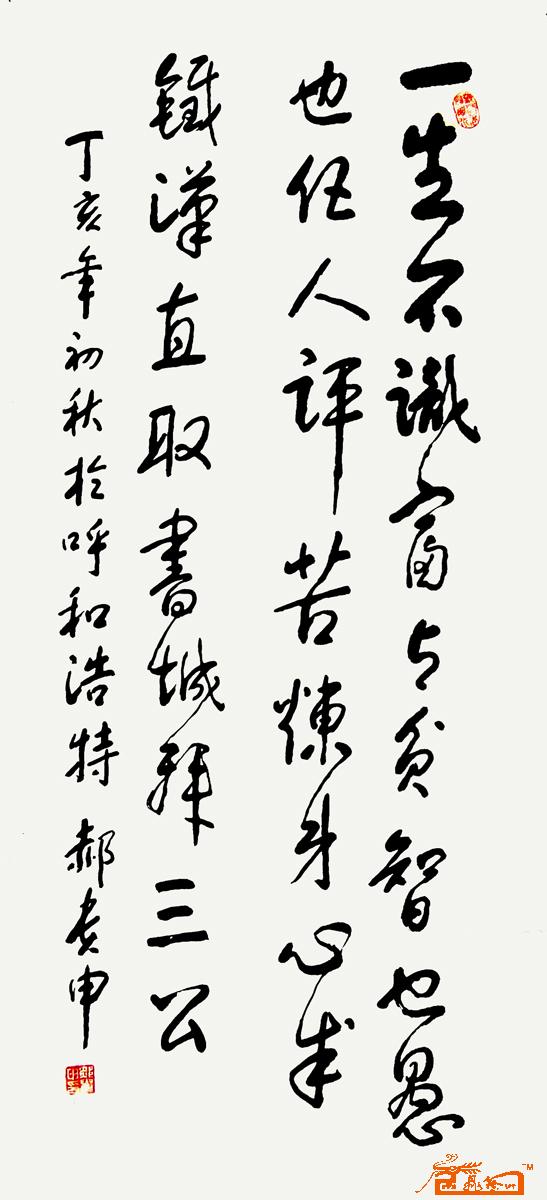 一生不識富與貧智也愚
也任人評苦煉身心成
鐵漢直取書城拜三公
丁亥年初秋於呼和浩特 郝貴申
TM